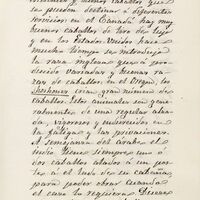 y buenos caballos que
se puedan destinar a diferentes
servicios en el Canadá hay muy
buenos caballos de tiro de lujo
y en los Estados Unidos hace
mucho tiempo se introdujo
la raza inglesa que a pro-
ducido variadas y buenas ra-
zas de caballos en el
cria gran número de
caballos. Estos animales son gene-
ralmente de una regular alza-
da, vigorosos y endurecidos en
la fatiga y las privaciones.
A semejanza del árabe el
indio tiene siempre uno o
dos caballos atados a un pos-
te a el lado de su cabaña
para poder obrar cuando
el caso lo requiera. Diaria